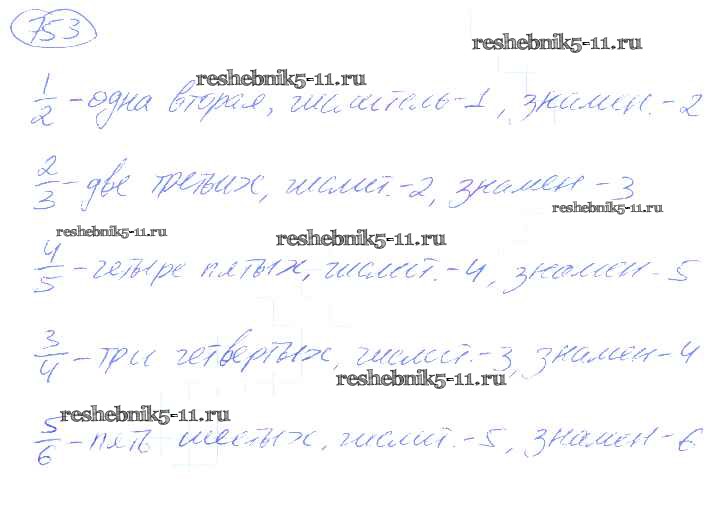 753
reshebnik5-11.ru
reshebnik5-11.ru
1/2 - одна вторая, числитель - 1, знамен. - 2
2/3 - две третьих, числит. - 2, знамен - 3
reshebnik5-11.ru
reshebnik5-11.ru
reshebnik5-11.ru
4/5 - четыре пятых, числит. - 4, знамен - 5
3/4 - три четвертых, числит. - 3, знамен - 4
reshebnik5-11.ru
reshebnik5-11.ru
5/6 - пять шестых, числит. - 5, знамен - 6